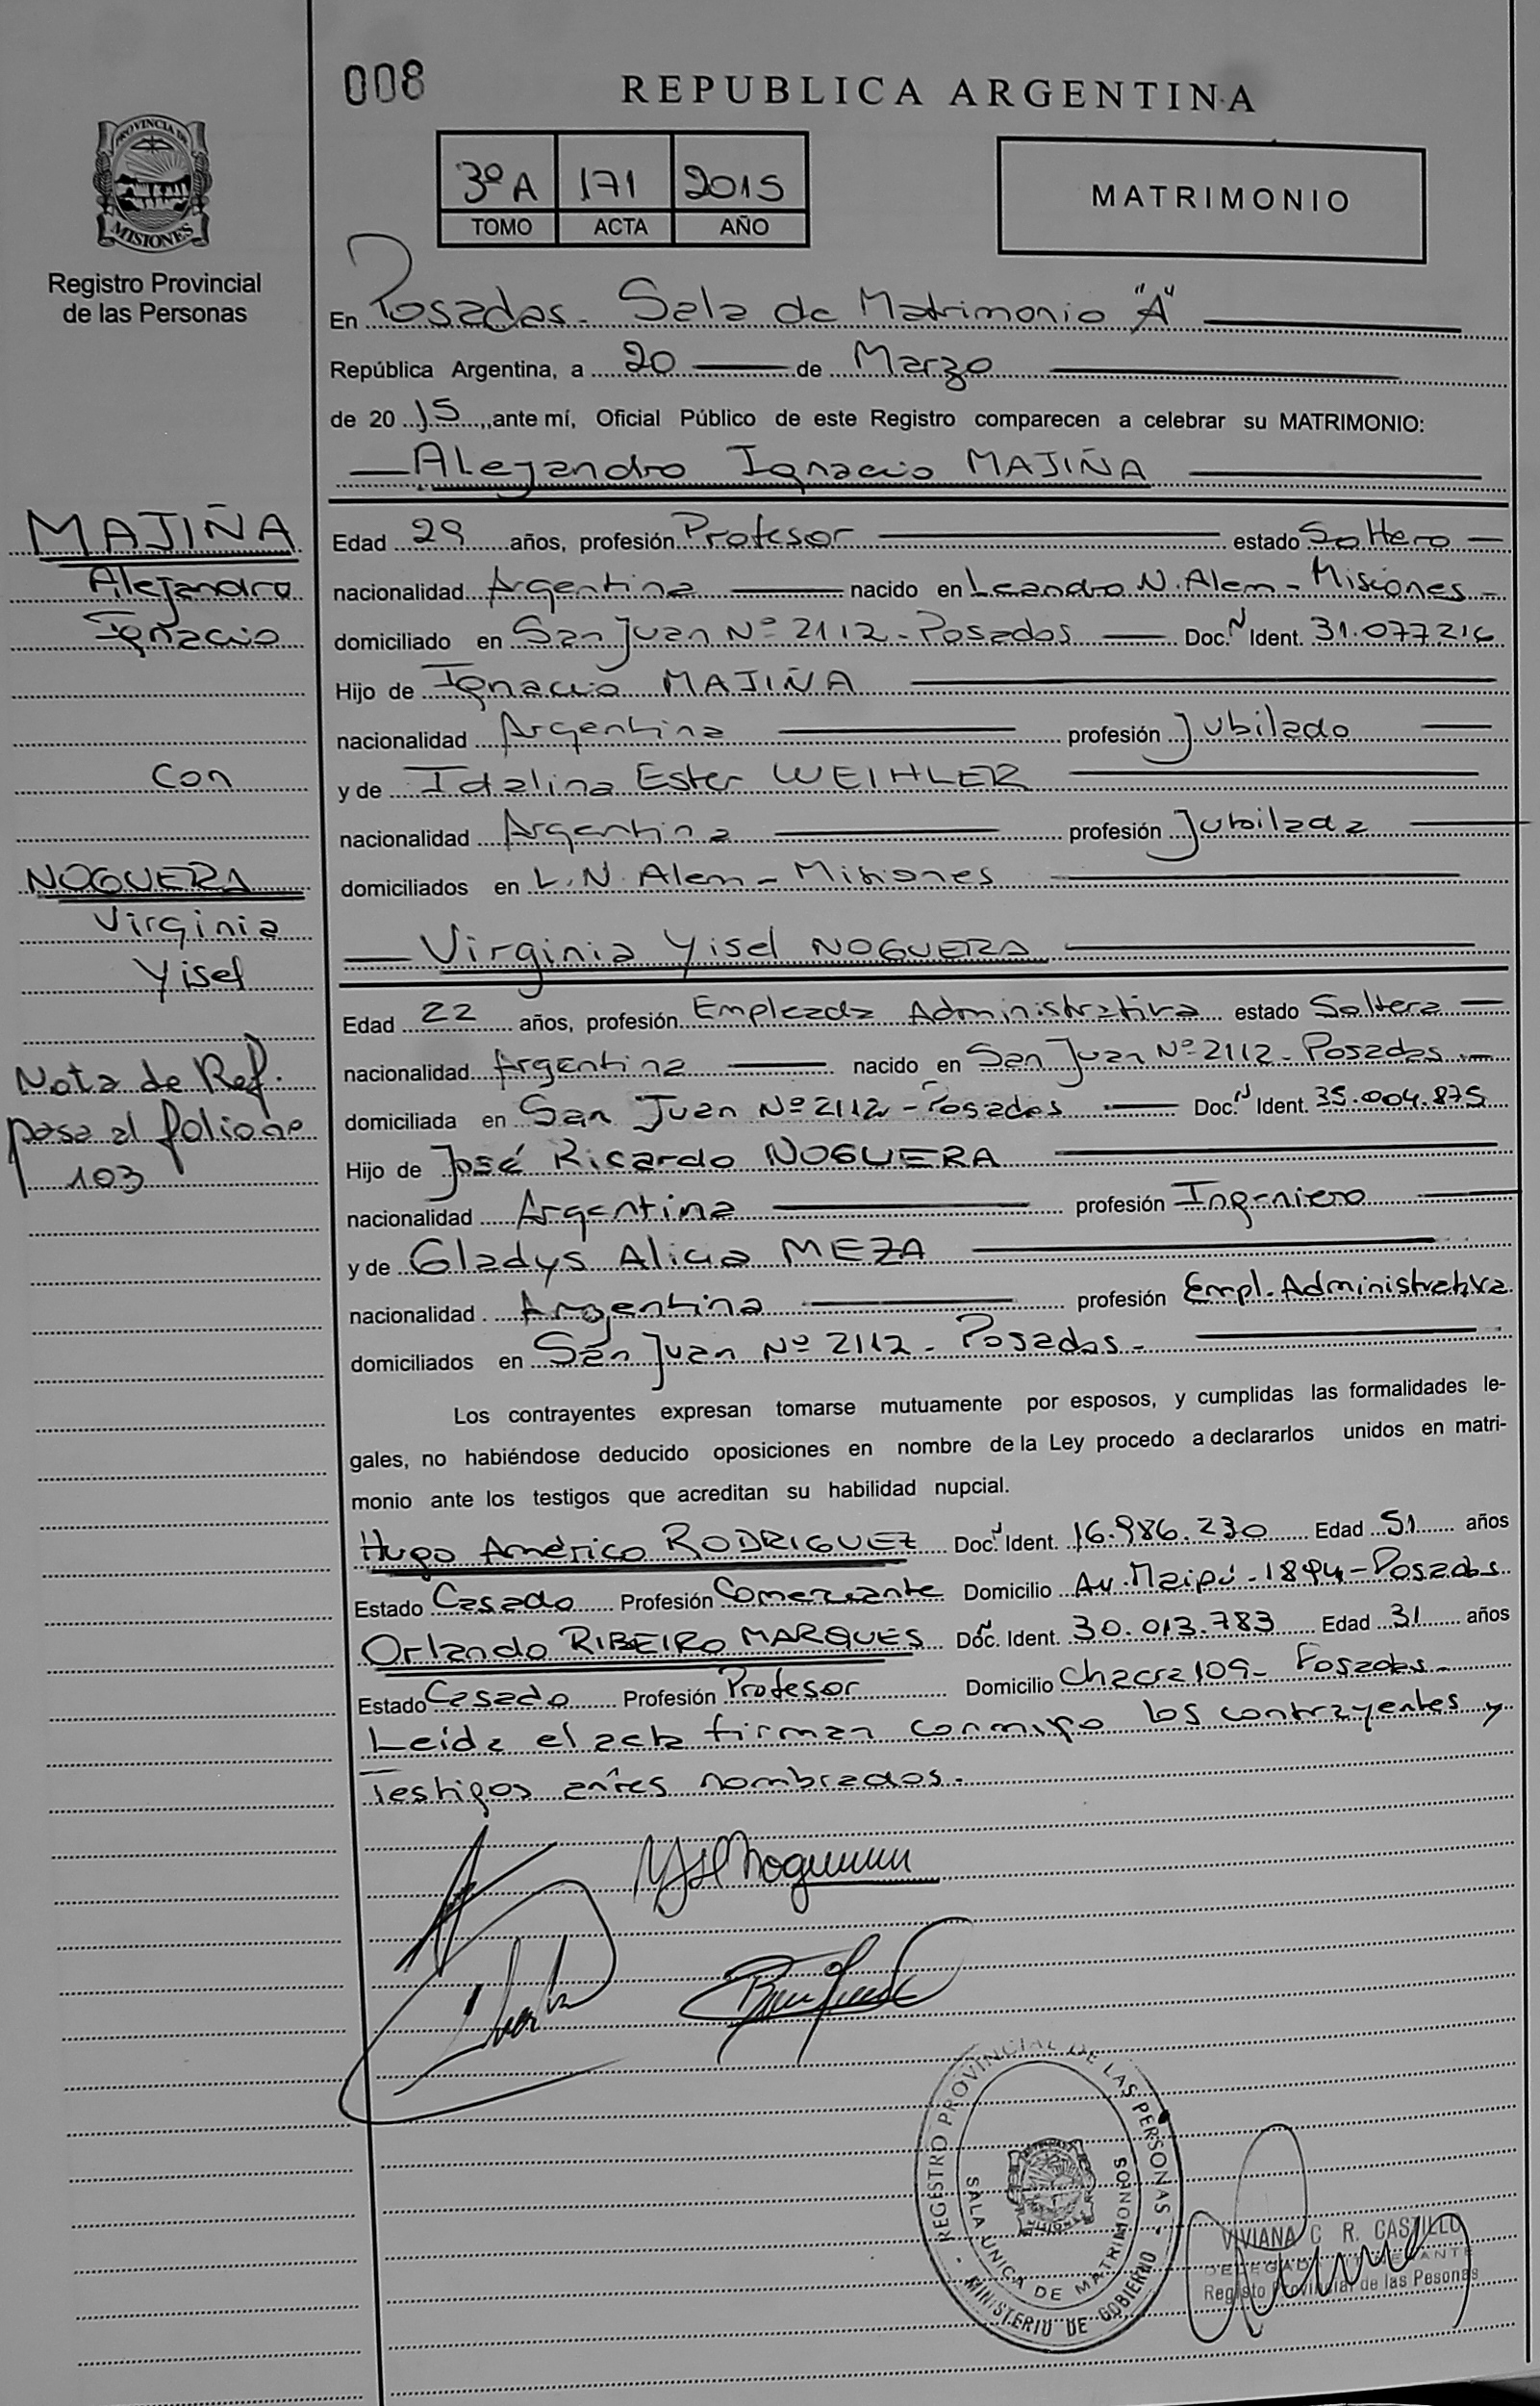 008
REPUBLICA ARGENTINA
PROVINCIA DE
MISIONES
Registro Provincial
de las Personas
3º A 171 2015
TOMO ACTA AÑO
MATRIMONIO
En Posadas - Sala de Matrimonio "A"
República Argentina, a 20 de Marzo
de 20 15, ante mí, Oficial Público de este Registro comparecen a celebrar su MATRIMONIO:
Alejandro Ignacio MAJIÑA
Edad 29 años, profesión Profesor estado Soltero
nacionalidad Argentina nacido en Leandro N. Alem - Misiones -
domiciliado en San Juan Nº 2112 - Posadas Doc. N Ident. 31.077.216
Hijo de Ignacio MAJIÑA
nacionalidad Argentina profesión Jubilado
y de Idalina Ester WEIHLER
nacionalidad Argentina profesión Jubilada
domiciliados en L.N. Alem - Misiones
Virginia Yisel NOGUERA
Edad 22 años, profesión Empleada Administrativa estado Soltera
nacionalidad Argentina nacido en San Juan Nº 2112 - Posadas
domiciliada en San Juan Nº 2112 - Posadas Doc. N Ident. 35.004.875
Hijo de José Ricardo NOGUERA
nacionalidad Argentina profesión Ingeniero
y de Gladys Alicia MEZA
nacionalidad Argentina profesión Empl. Administrativa
domiciliados en San Juan Nº 2112 - Posadas -
Los contrayentes expresan tomarse mutuamente por esposos, y cumplidas las formalidades le-
gales, no habiéndose deducido oposiciones en nombre de la Ley procedo a declararlos unidos en matri-
monio ante los testigos que acreditan su habilidad nupcial.
Hugo Américo RODRIGUEZ Doc. N Ident. 16.986.230 Edad 51 años
Estado Casado Profesión Comerciante Domicilio Av. Maipú - 1894 - Posadas
Orlando RIBEIRO MARQUES Doc. N Ident. 30.013.783 Edad 31 años
Estado Casado Profesión Profesor Domicilio Chacra 109 - Posadas -
Leida el acta firman conmigo los contrayentes y
Testigos antes nombrados.
MAJIÑA
Alejandro
Ignacio
Con
NOGUERA
Virginia
Yisel
Nota de Ref.
pasa al folio no
103
REGISTRO PROVINCIAL DE LAS PERSONAS
SALA UNICA DE MATRIMONIOS
MINISTERIO DE GOBIERNO
VIVIANA C R. CASTILLO
Registo Provincial de las Pesonas